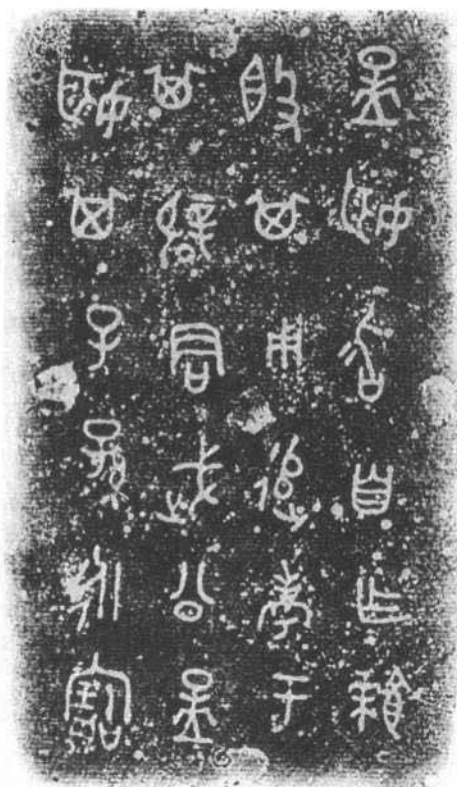 孟姬冶自乍饙
𣪘其用追孝于
其辟君武公孟
姬其子孫永寶